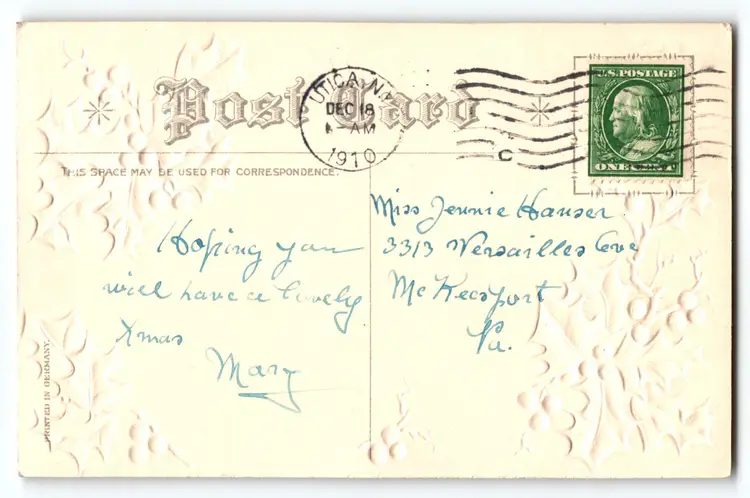 Post Card
UTICA, N.Y.
DEC 18
AM
1910
U.S. POSTAGE
ONE CENT
THIS SPACE MAY BE USED FOR CORRESPONDENCE.
Hoping you
will have a lovely
Xmas
Mary
Miss Jennie Hauser
3313 Versailles Ave
McKeesport
Pa.
PRINTED IN GERMANY.